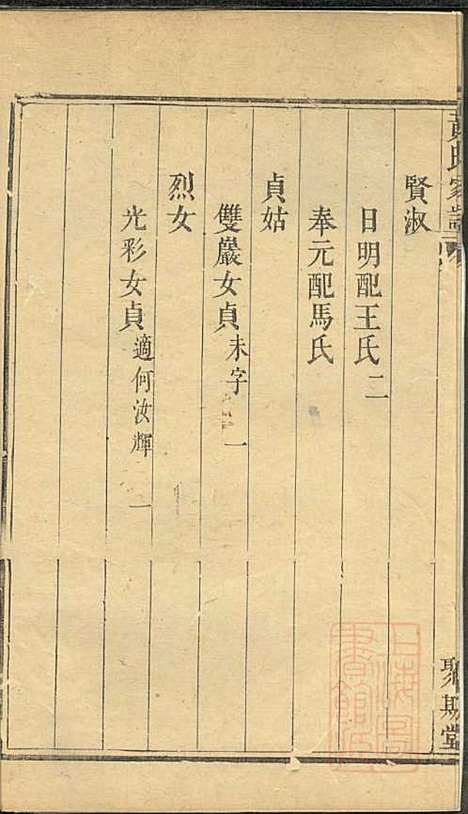 黃氏家譜
聚期堂
賢淑
日明配王氏 二
奉元配馬氏
貞姑
雙巖女貞 未字 一
烈女
光彩女貞 適何汝輝 一
上海圖書館藏